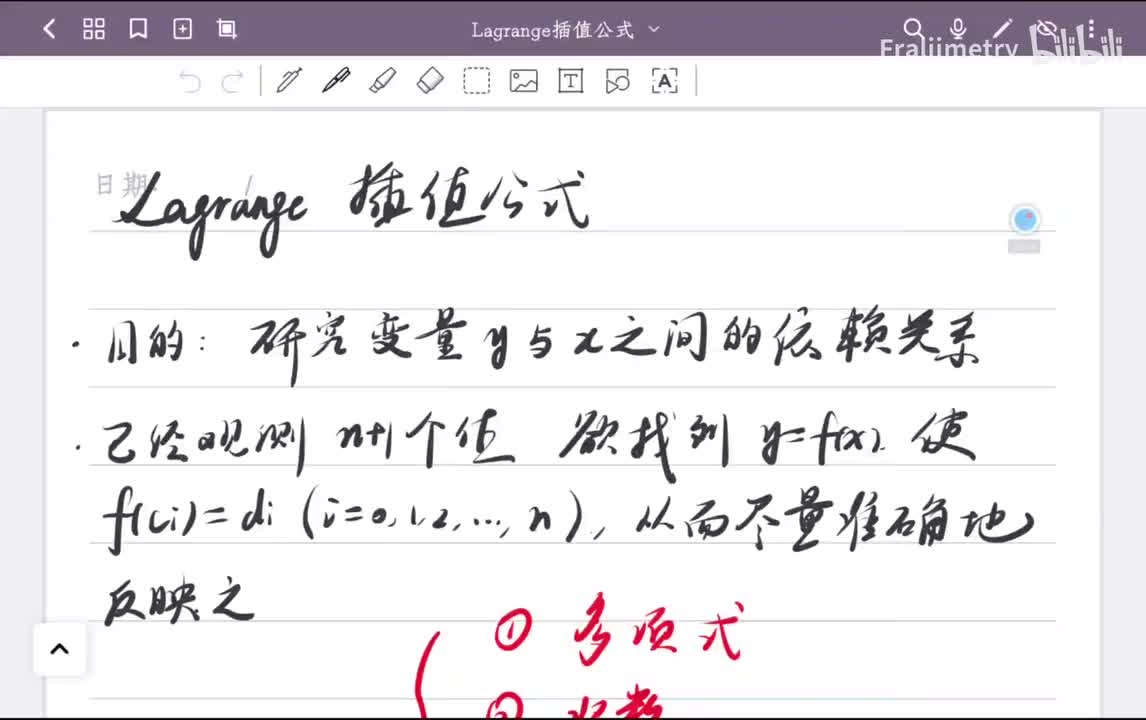 Lagrange插值公式
Fraliimetry bilibili
日期:
Lagrange 插值公式
· 目的: 研究变量y与x之间的依赖关系
· 已经观测 n+1个值 欲找到 y=f(x). 使
f(ci)=di (i=0,1,2,...,n), 从而尽量准确地
反映之
① 多项式
②